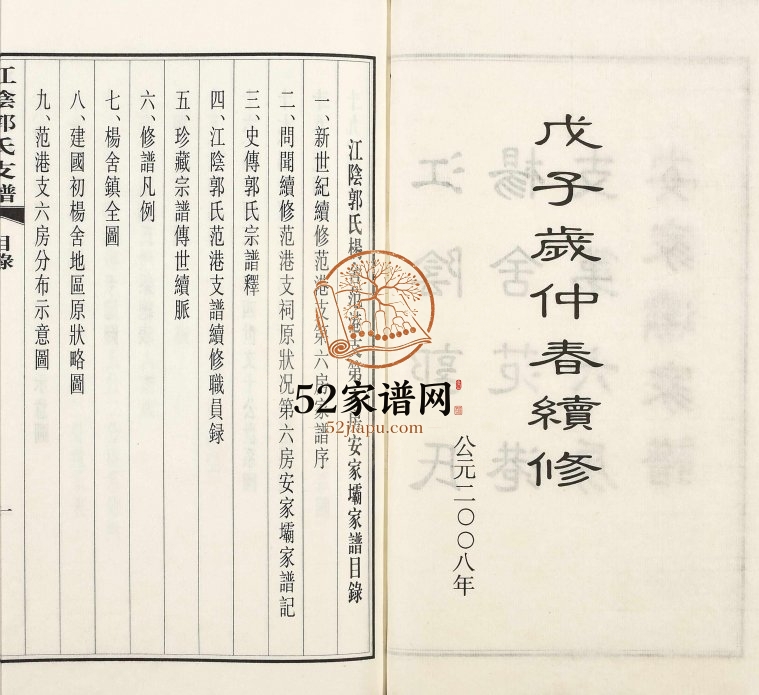 戊子歲仲春續修
公元二〇〇八年
江陰郭氏楊舍范港支第六房安家壩家譜目錄
一、新世紀續修范港支第六房家譜序
二、問聞續修范港支祠原狀况第六房安家壩家譜記
三、史傳郭氏宗譜釋
四、江陰郭氏范港支譜續修職員録
五、珍藏宗譜傳世續脈
六、修譜凡例
七、楊舍鎮全圖
八、建國初楊舍地區原狀略圖
九、范港支六房分布示意圖
江陰郭氏支譜
目錄
一
52家谱网
52jiapu.com